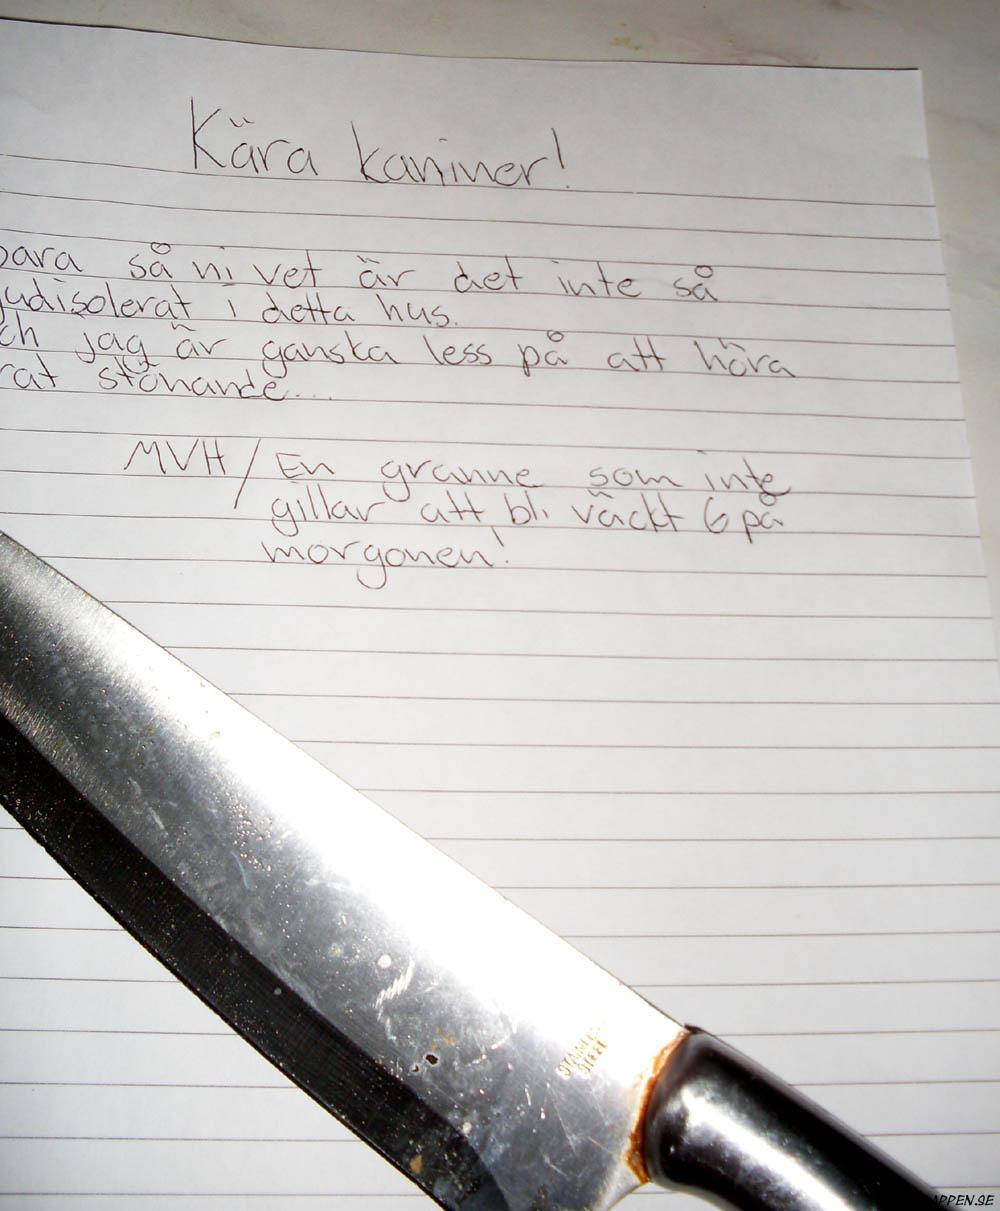 Kära kaniner!
bara så ni vet är det inte så
judisolerat i detta hus.
ch jag är ganska less på att höra
rat stönande...
MVH/En granne som inte
gillar att bli väckt 6 på
morgonen!
STAINLESS
STEEL
APPEN.SE